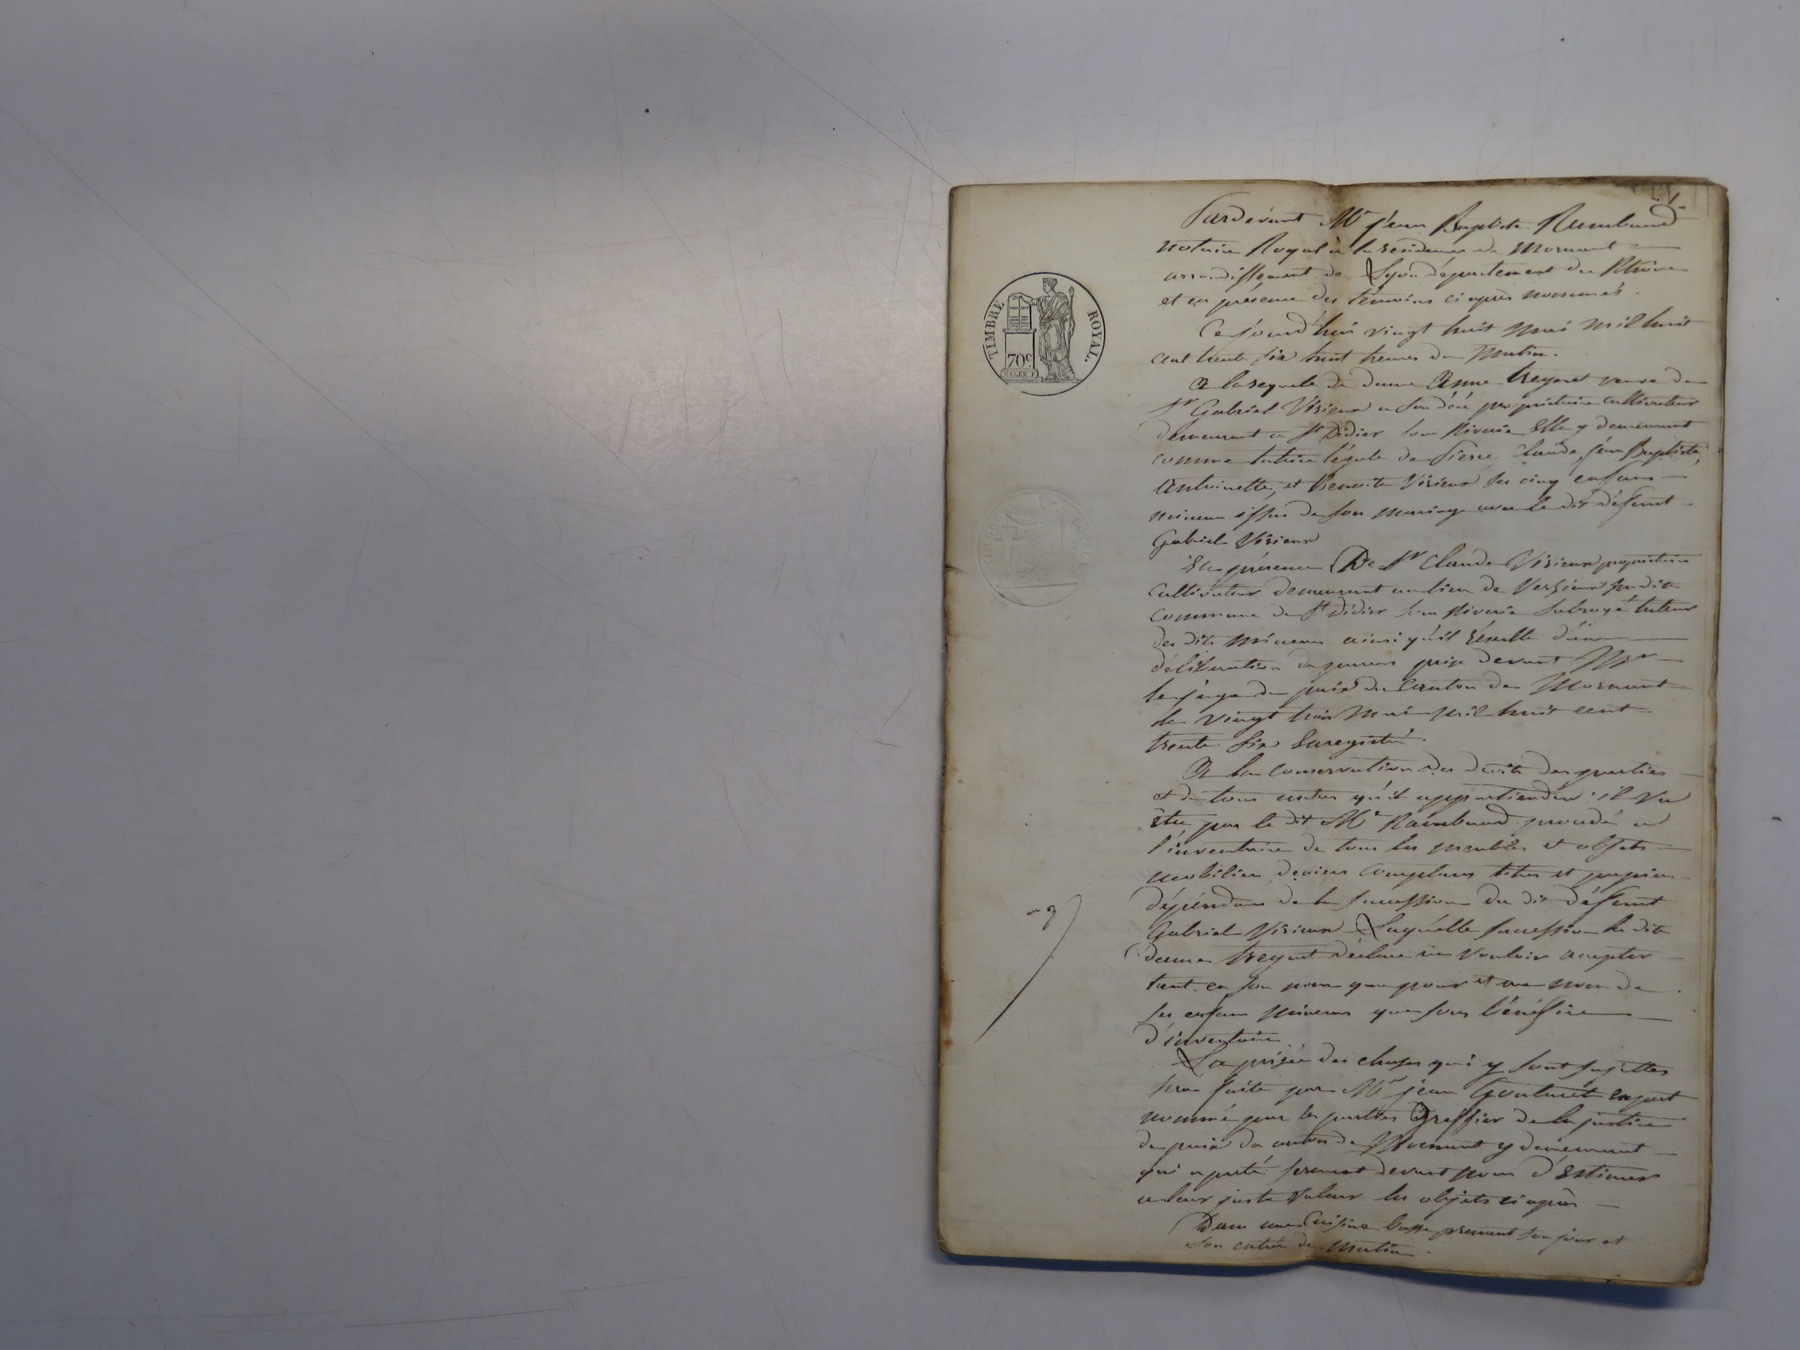 Pardevant Me jean Baptiste Raimbaud
notaire Royal à la résidence de Mornant
arrondissement de Lyon département du Rhône
et en présence des témoins ci après nommés.
Ce jourd'hui vingt huit Mai mil huit
cent trente six huit heures du Matin.
A la requête de dame Anne treyvet veuve de
sr Gabriel Virieux en son décé propriétaire cultivateur
demeurant a st Didier sous Riverie Elle y demeurant
comme tutrice légale de Pierre Claude jean Baptiste,
Antoinette, et Benoite Virieux ses cinq enfans
mineurs issus de son mariage avec le dit défunt
Gabriel Virieux
En présence De sr Claude Virieux propriétaire
cultivateur demeurant au lieu de sus dite
commune de st Didier sous Riverie subrogé tuteur
des dits Mineurs ainsi qu'il résulte d'une
délibération de parens prise devant Mr
le juge de paix du Canton de Mornant
le vingt trois Mai mil huit cent
trente six Enregistré.
A la conservation des droits des parties
et de tous autres qu'il appartiendra il va
être par le dit Me Raimbaud procédé a
l'inventaire de tous les meubles et objets
mobiliers, deniers comptans titres et papiers
dépendans de la succession du dit défunt
Gabriel Virieux Laquelle succession la dite
dame treyvet déclare ne vouloir accepter
tant en son nom que pour et au nom de
ses enfans Mineurs que sous bénéfice
d'inventaire
La prisée des choses qui y sont sujettes
sera faite par Mr jean expert
nommé par les parties Greffier de la justice
de paix du canton de Mornant y demeurant
qui a prêté serment devant nous d'Estimer
a leur juste valeur les objets ci après
Dans une Cuisine basse prenant son jour et
son entrée du Matin.
TIMBRE ROYAL.
70c